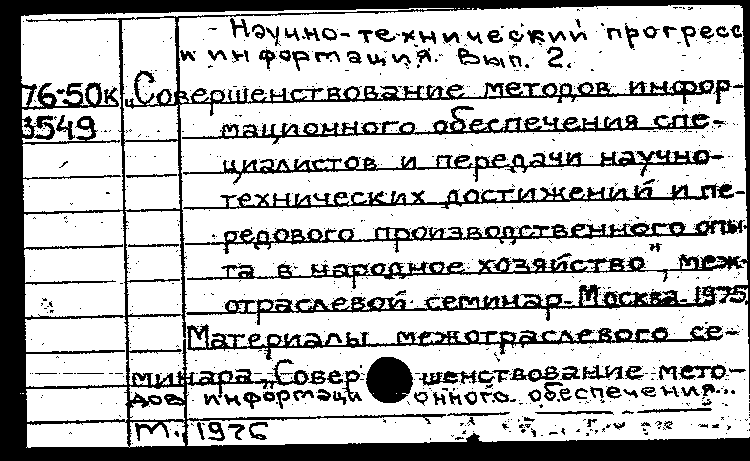 Научно-технический прогресс
и информация. Вып. 2.
76-50к „Совершенствование методов инфор-
3549 мационного обеспечения спе-
циалистов и передачи научно-
технических достижений и пе-
редового производственного опы-
та в народное хозяйство", меж-
отраслевой семинар. Москва. 1975.
Материалы межотраслевого се-
минара „Совершенствование мето-
дов информационного обеспечения...
М., 1976